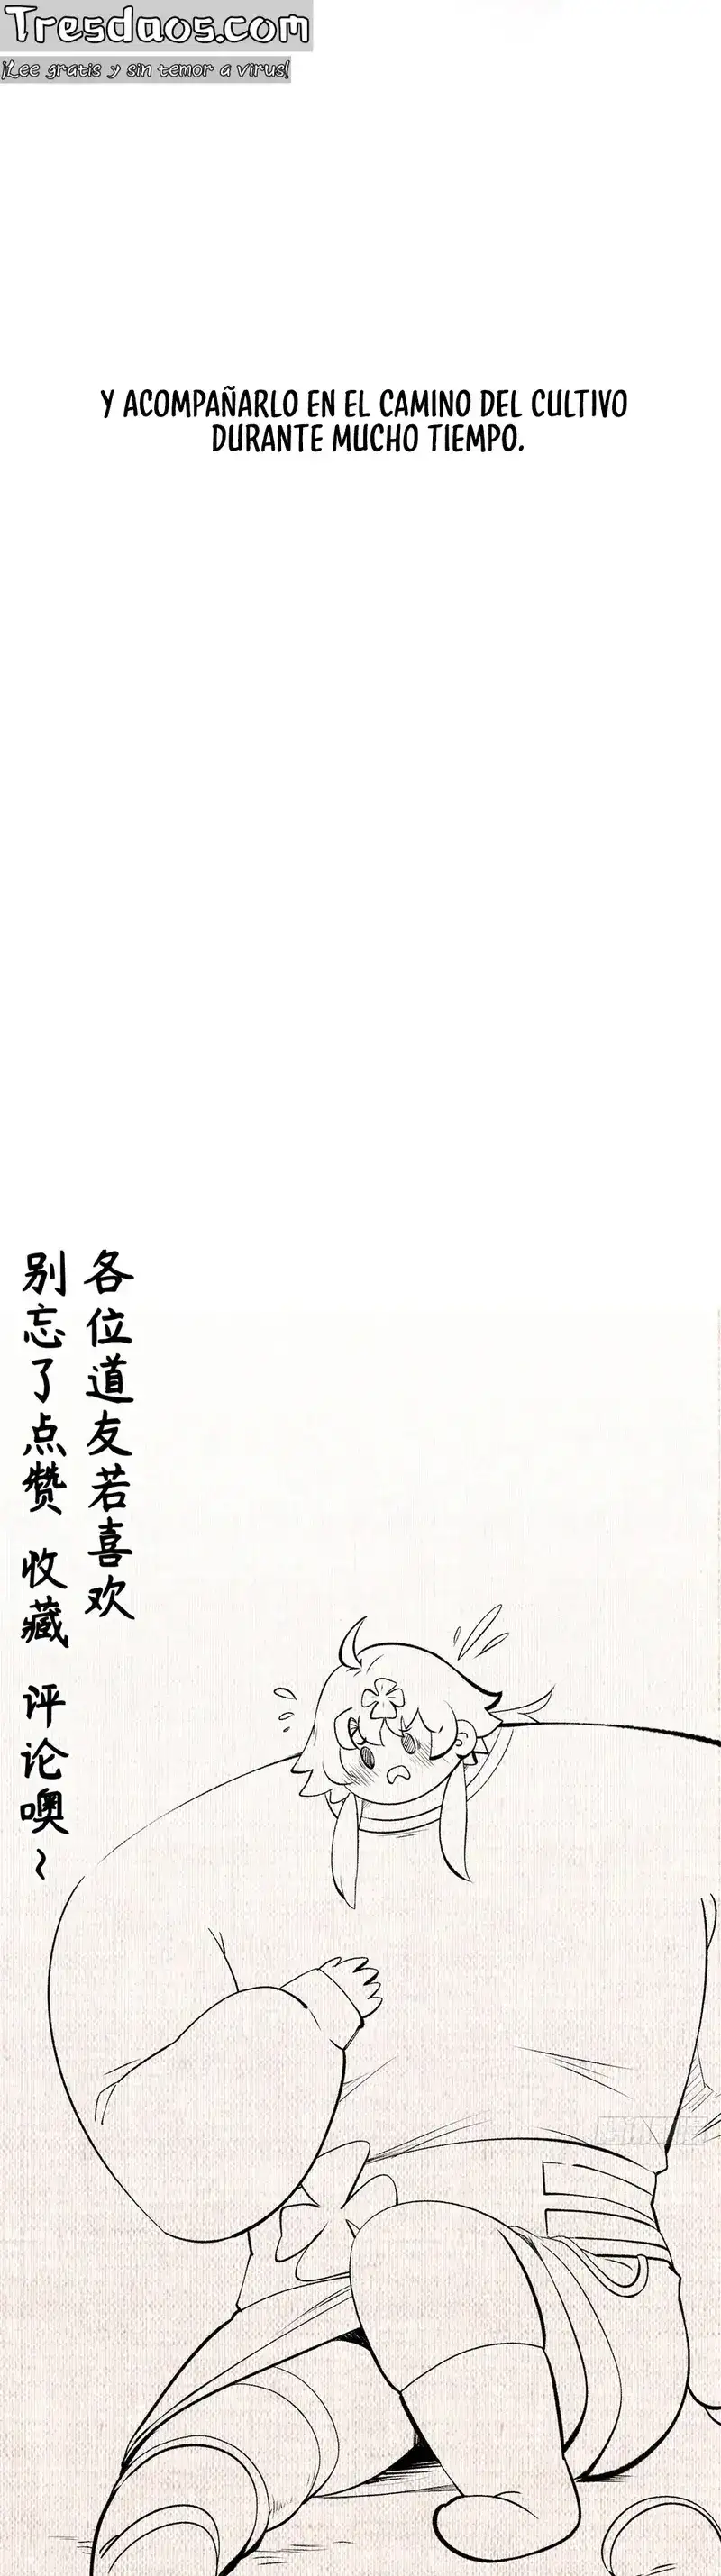 Tresdaos.com
¡Lee gratis y sin temor a virus!
Y ACOMPAÑARLO EN EL CAMINO DEL CULTIVO
DURANTE MUCHO TIEMPO.
各位道友若喜欢
别忘了点赞 收藏 评论噢~